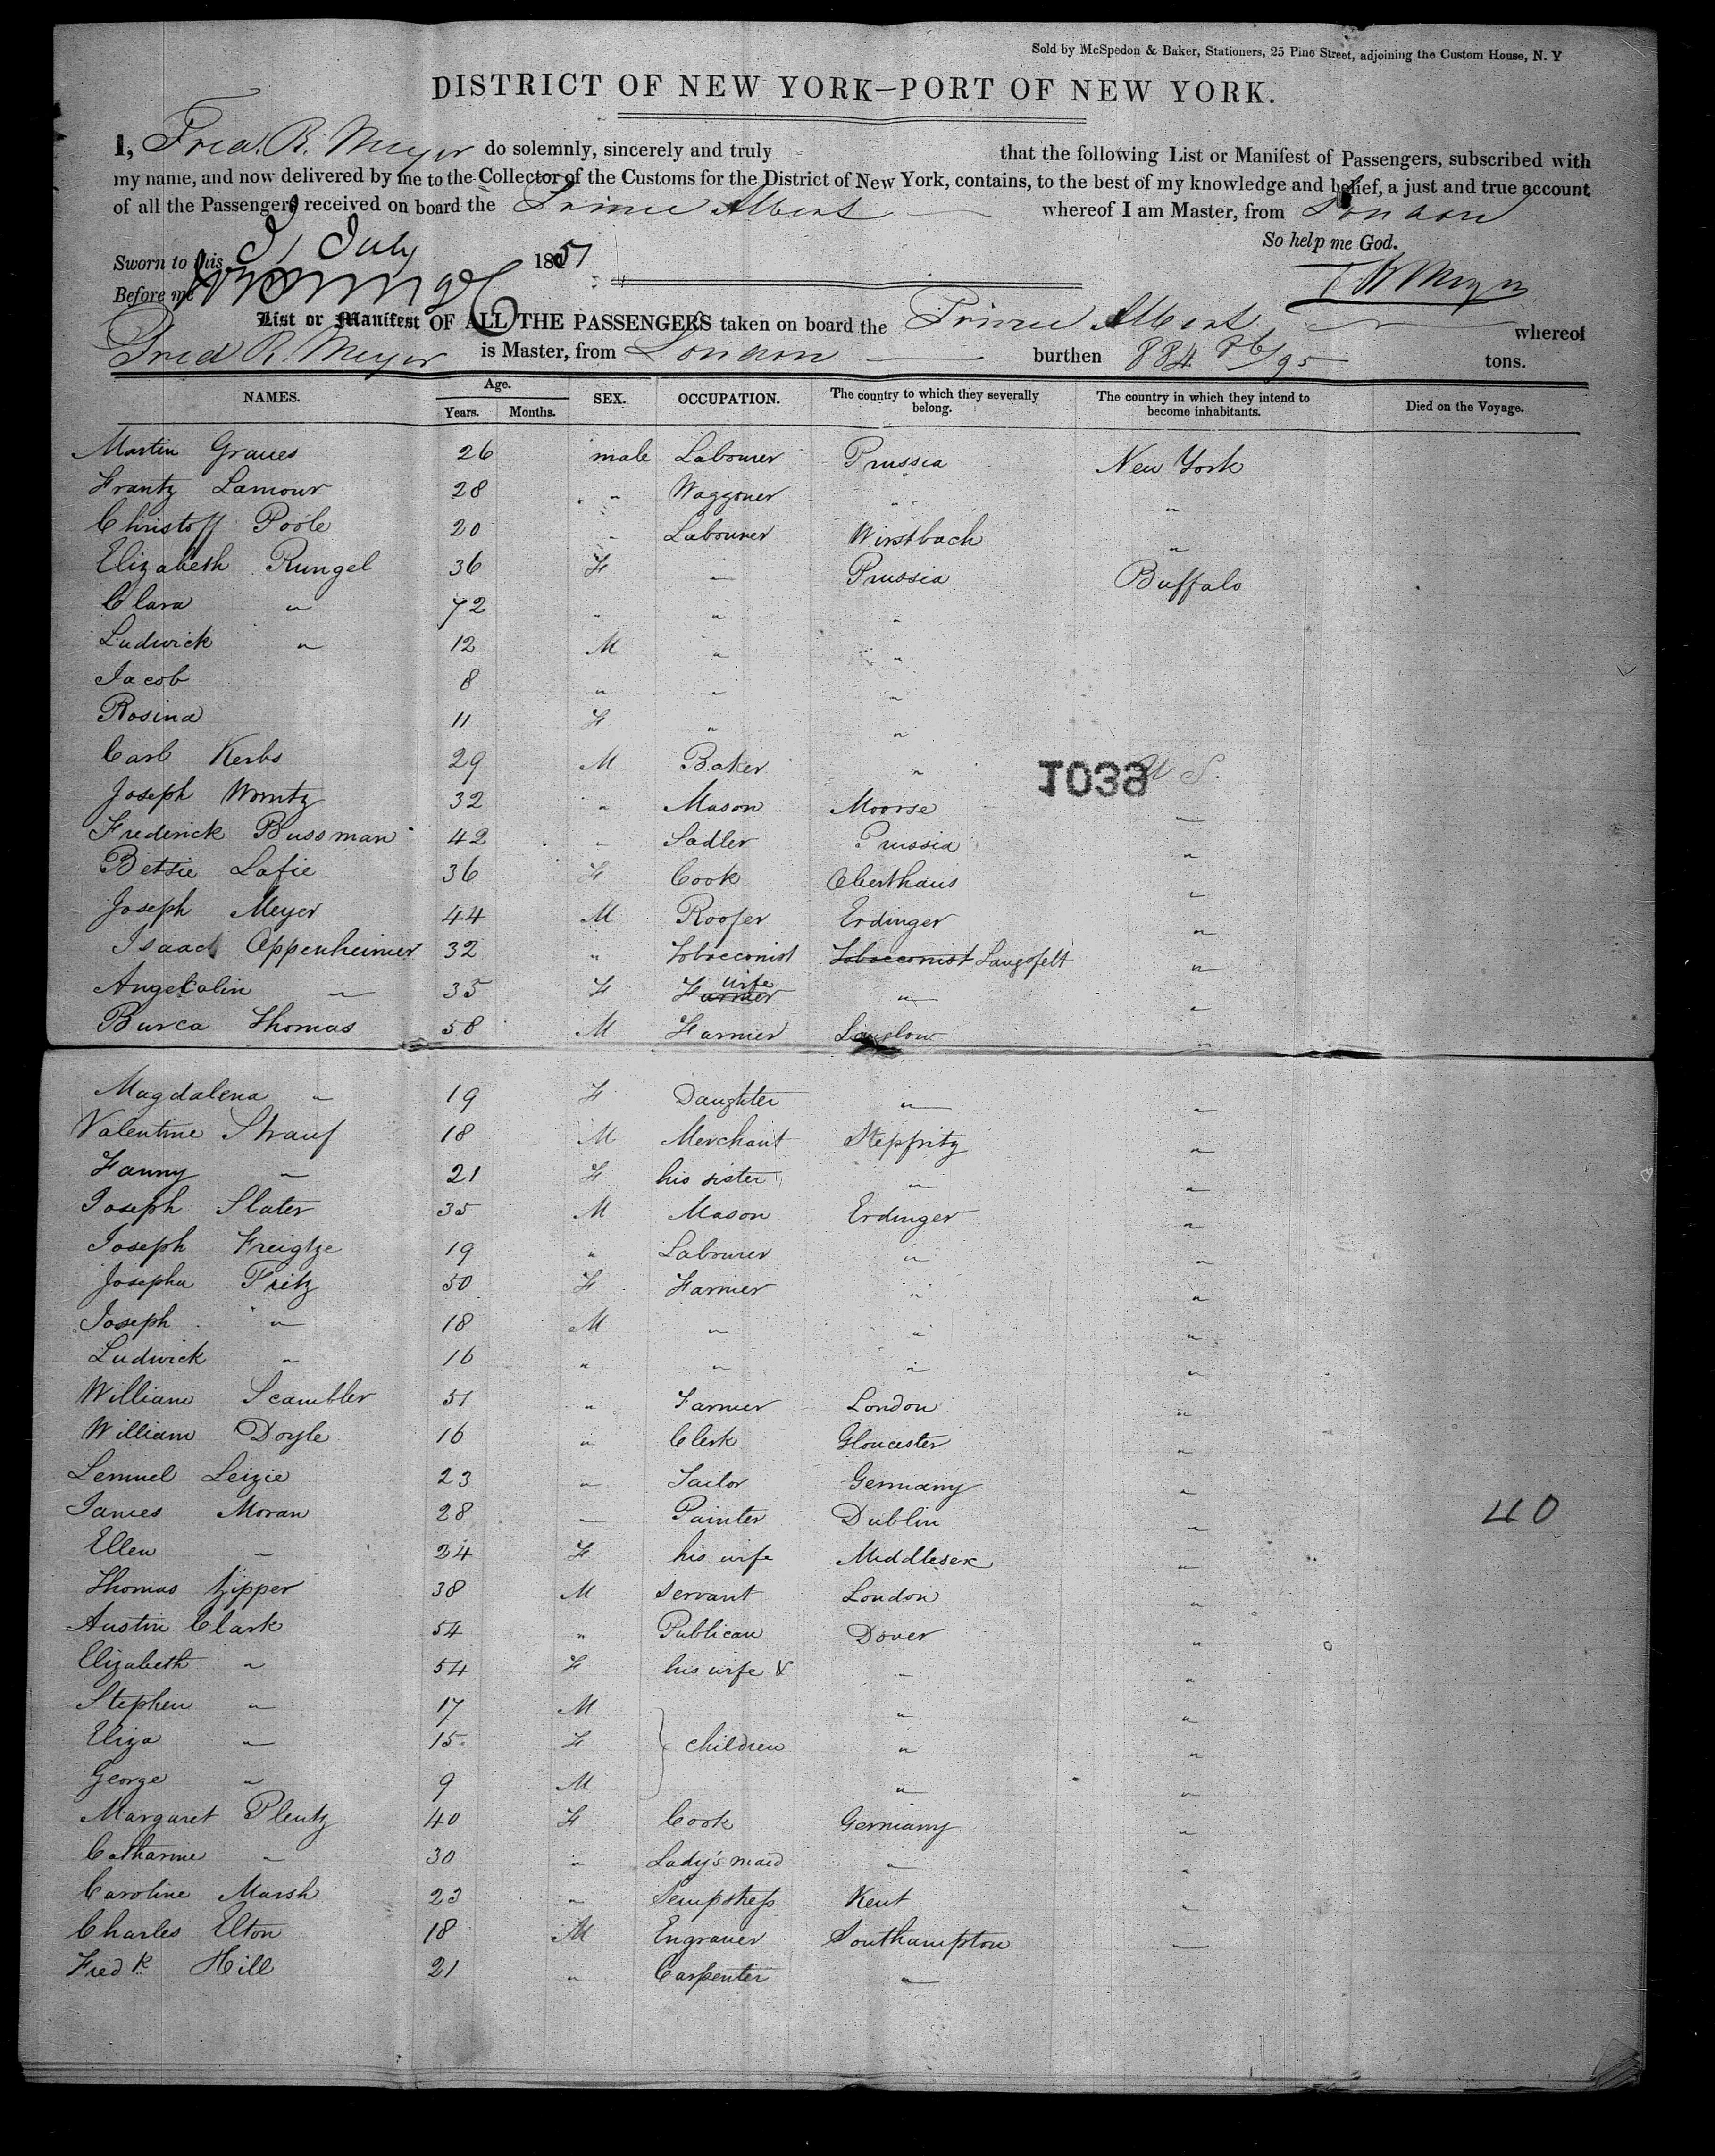 Sold by McSpedon & Baker, Stationers, 25 Pine Street, adjoining the Custom House, N. Y
DISTRICT OF NEW YORK—PORT OF NEW YORK.
I, Fred. R. Meyer do solemnly, sincerely and truly that the following List or Manifest of Passengers, subscribed with
my name, and now delivered by me to the Collector of the Customs for the District of New York, contains, to the best of my knowledge and belief, a just and true account
of all the Passengers received on board the Prince Albert whereof I am Master, from London
So help me God.
Sworn to this 31 July 1851
Before me
F R Meyer
List or Manifest OF ALL THE PASSENGERS taken on board the Prince Albert whereof
Fred R. Meyer is Master, from London burthen 884 86/95 tons.
NAMES. Age. Years. Months. SEX. OCCUPATION. The country to which they severally belong. The country in which they intend to become inhabitants. Died on the Voyage.
Martin Graues 26 male Labourer Prussia New York
Frantz Lamour 28 " Waggoner " "
Christoff Poole 20 " Labourer Wirstbach "
Elizabeth Rungel 36 F " Prussia Buffalo
Clara " 72 " " "
Ludwick " 12 M " "
Jacob 8 " " "
Rosina 11 F " "
Carl Kerbs 29 M Baker " U S.
1038
Joseph Worntz 32 " Mason Moorse "
Frederick Bussman 42 " Sadler Prussia "
Betsie Lafie 36 F Cook Oberthaus "
Joseph Meyer 44 M Roofer Erdinger "
Isaac Oppenheimer 32 " Tobacconist Tobacconist Langsfelt "
Angekalin " 35 F Farmer wife " "
Burca Thomas 58 M Farmer Lauslow "
Magdalena " 19 F Daughter " "
Valentine Strauf 18 M Merchant Stepfritz "
Fanny " 21 F his sister " "
Joseph Slater 35 M Mason Erdinger "
Joseph Freigtze 19 " Labourer " "
Josepha Fritz 50 F Farmer " "
Joseph " 18 M " " "
Ludwick " 16 " " " "
William Scambler 51 " Farmer London "
William Doyle 16 " Clerk Gloucester "
Lemuel Leizie 23 " Tailor Germany "
James Moran 28 " Painter Dublin " 40
Ellen " 24 F his wife Middlesex "
Thomas Zipper 38 M Servant London "
Austin Clark 54 " Publican Dover "
Elizabeth " 54 F his wife & " "
Stephen " 17 M " "
Eliza " 15 F children " "
George " 9 M " "
Margaret Plentz 40 F Cook Germany "
Catharine " 30 " Lady's maid " "
Caroline Marsh 23 " Sempstress Kent "
Charles Elton 18 M Engraver Southampton "
Fredk Hill 21 " Carpenter "